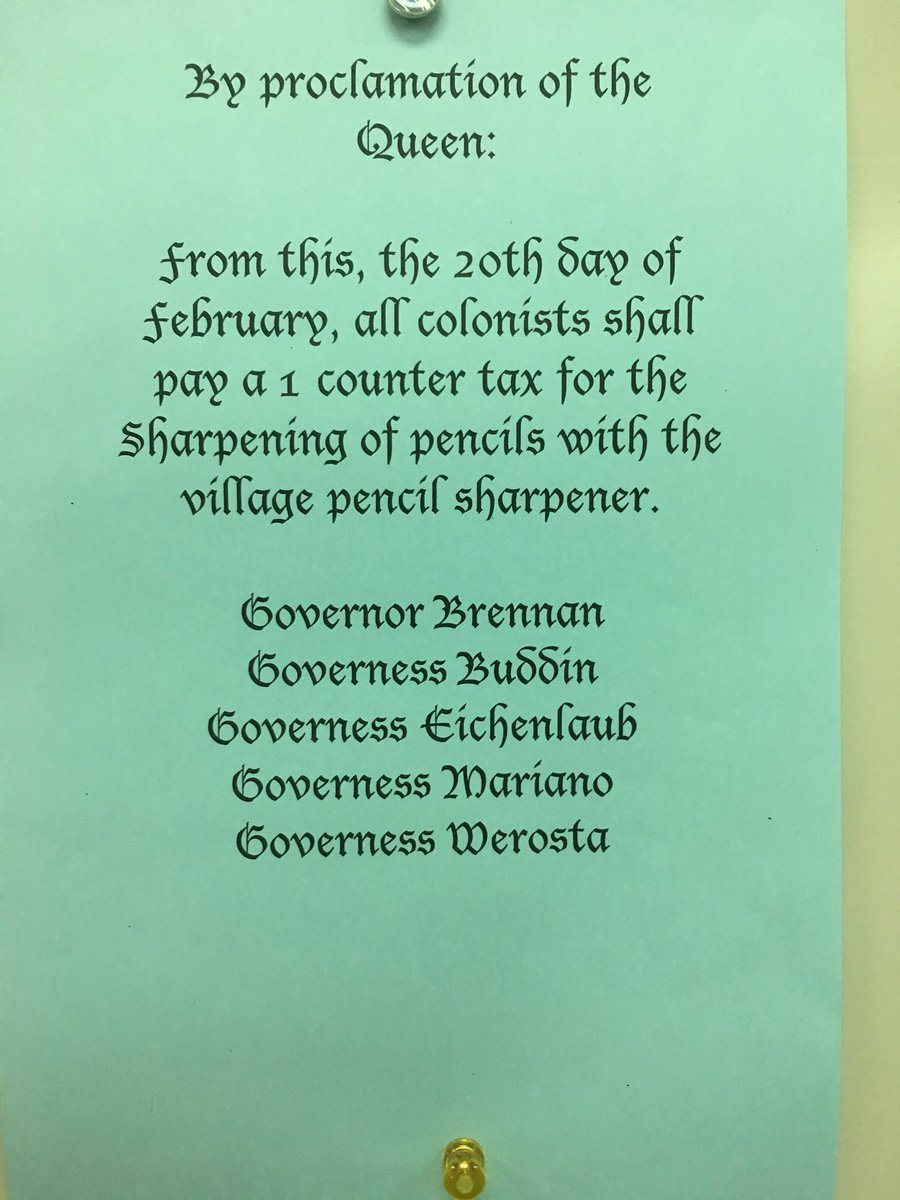 By proclamation of the
Queen:
From this, the 20th day of
February, all colonists shall
pay a 1 counter tax for the
Sharpening of pencils with the
village pencil sharpener.
Governor Brennan
Governess Buddin
Governess Eichenlaub
Governess Mariano
Governess Werosta